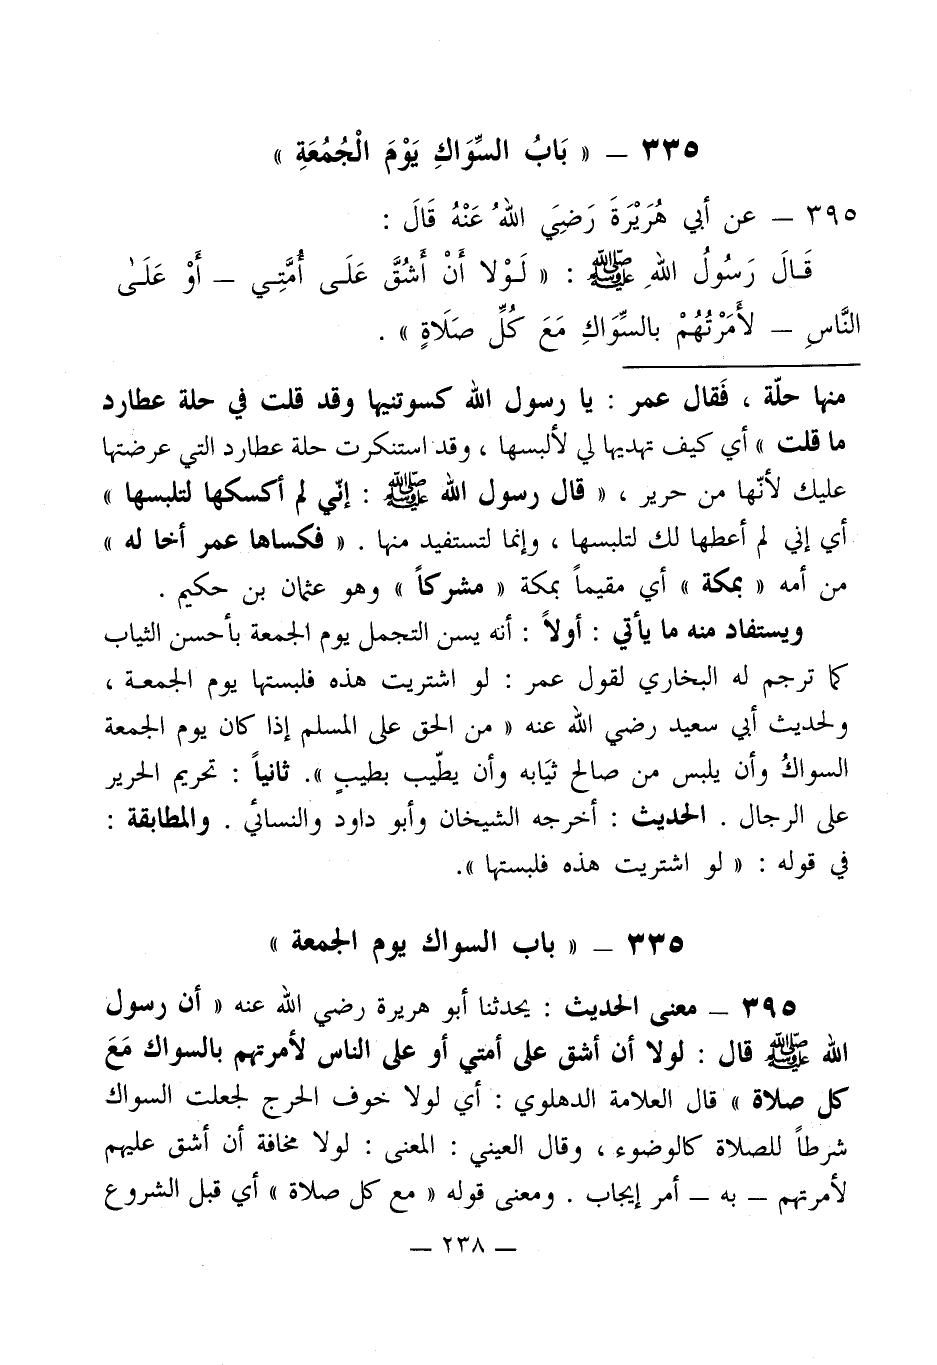 ٣٣٥ – « بَابُ السِّوَاكِ يَوْمَ الْجُمُعَةِ »
٣٩٥ – عن أبي هُرَيْرَةَ رَضِيَ اللهُ عَنْهُ قَالَ :
قَالَ رَسُولُ اللهِ ﷺ : « لَوْلا أَنْ أَشُقَّ عَلَى أُمَّتِي – أَوْ عَلَىٰ
النَّاسِ – لأَمَرْتُهُمْ بالسِّوَاكِ مَعَ كُلِّ صَلَاةٍ » .
منها حلّة ، فَقال عمر : يا رسول الله كسوتنيها وقد قلت في حلة عطارد
ما قلت » أي كيف تهديها لي لألبسها ، وقد استنكرت حلة عطارد التي عرضتها
عليك لأنّها من حرير ، « قال رسول الله ﷺ : إنّي لم أكسكها لتلبسها »
أي إني لم أعطها لك لتلبسها ، وإنما لتستفيد منها . « فكساها عمر أخا له »
من أمه « بمكة » أي مقيماً بمكة « مشركاً » وهو عثمان بن حكيم .
ويستفاد منه ما يأتي : أولاً : أنه يسن التجمل يوم الجمعة بأحسن الثياب
كما ترجم له البخاري لقول عمر : لو اشتريت هذه فلبستها يوم الجمعة ،
ولحديث أبي سعيد رضي الله عنه « من الحق على المسلم إذا كان يوم الجمعة
السواكُ وأن يلبس من صالح ثيَابه وأن يطّيب بطيبٍ ». ثانياً : تحريم الحرير
على الرجال . الحديث : أخرجه الشيخان وأبو داود والنسائي . والمطابقة :
في قوله : « لو اشتريت هذه فلبستها ».
٣٣٥ – « باب السواك يوم الجمعة »
٣٩٥ – معنى الحديث : يحدثنا أبو هريرة رضي الله عنه « أن رسول
الله ﷺ قال : لولا أن أشق على أمتي أو على الناس لأمرتهم بالسواك مَعَ
كل صلاة » قال العلامة الدهلوي : أي لولا خوف الحرج لجعلت السواك
شرطاً للصلاة كالوضوء ، وقال العيني : المعنى : لولا مخافة أن أشق عليهم
لأمرتهم – به – أمر إيجاب . ومعنى قوله « مع كل صلاة » أي قبل الشروع
– ٢٣٨ –